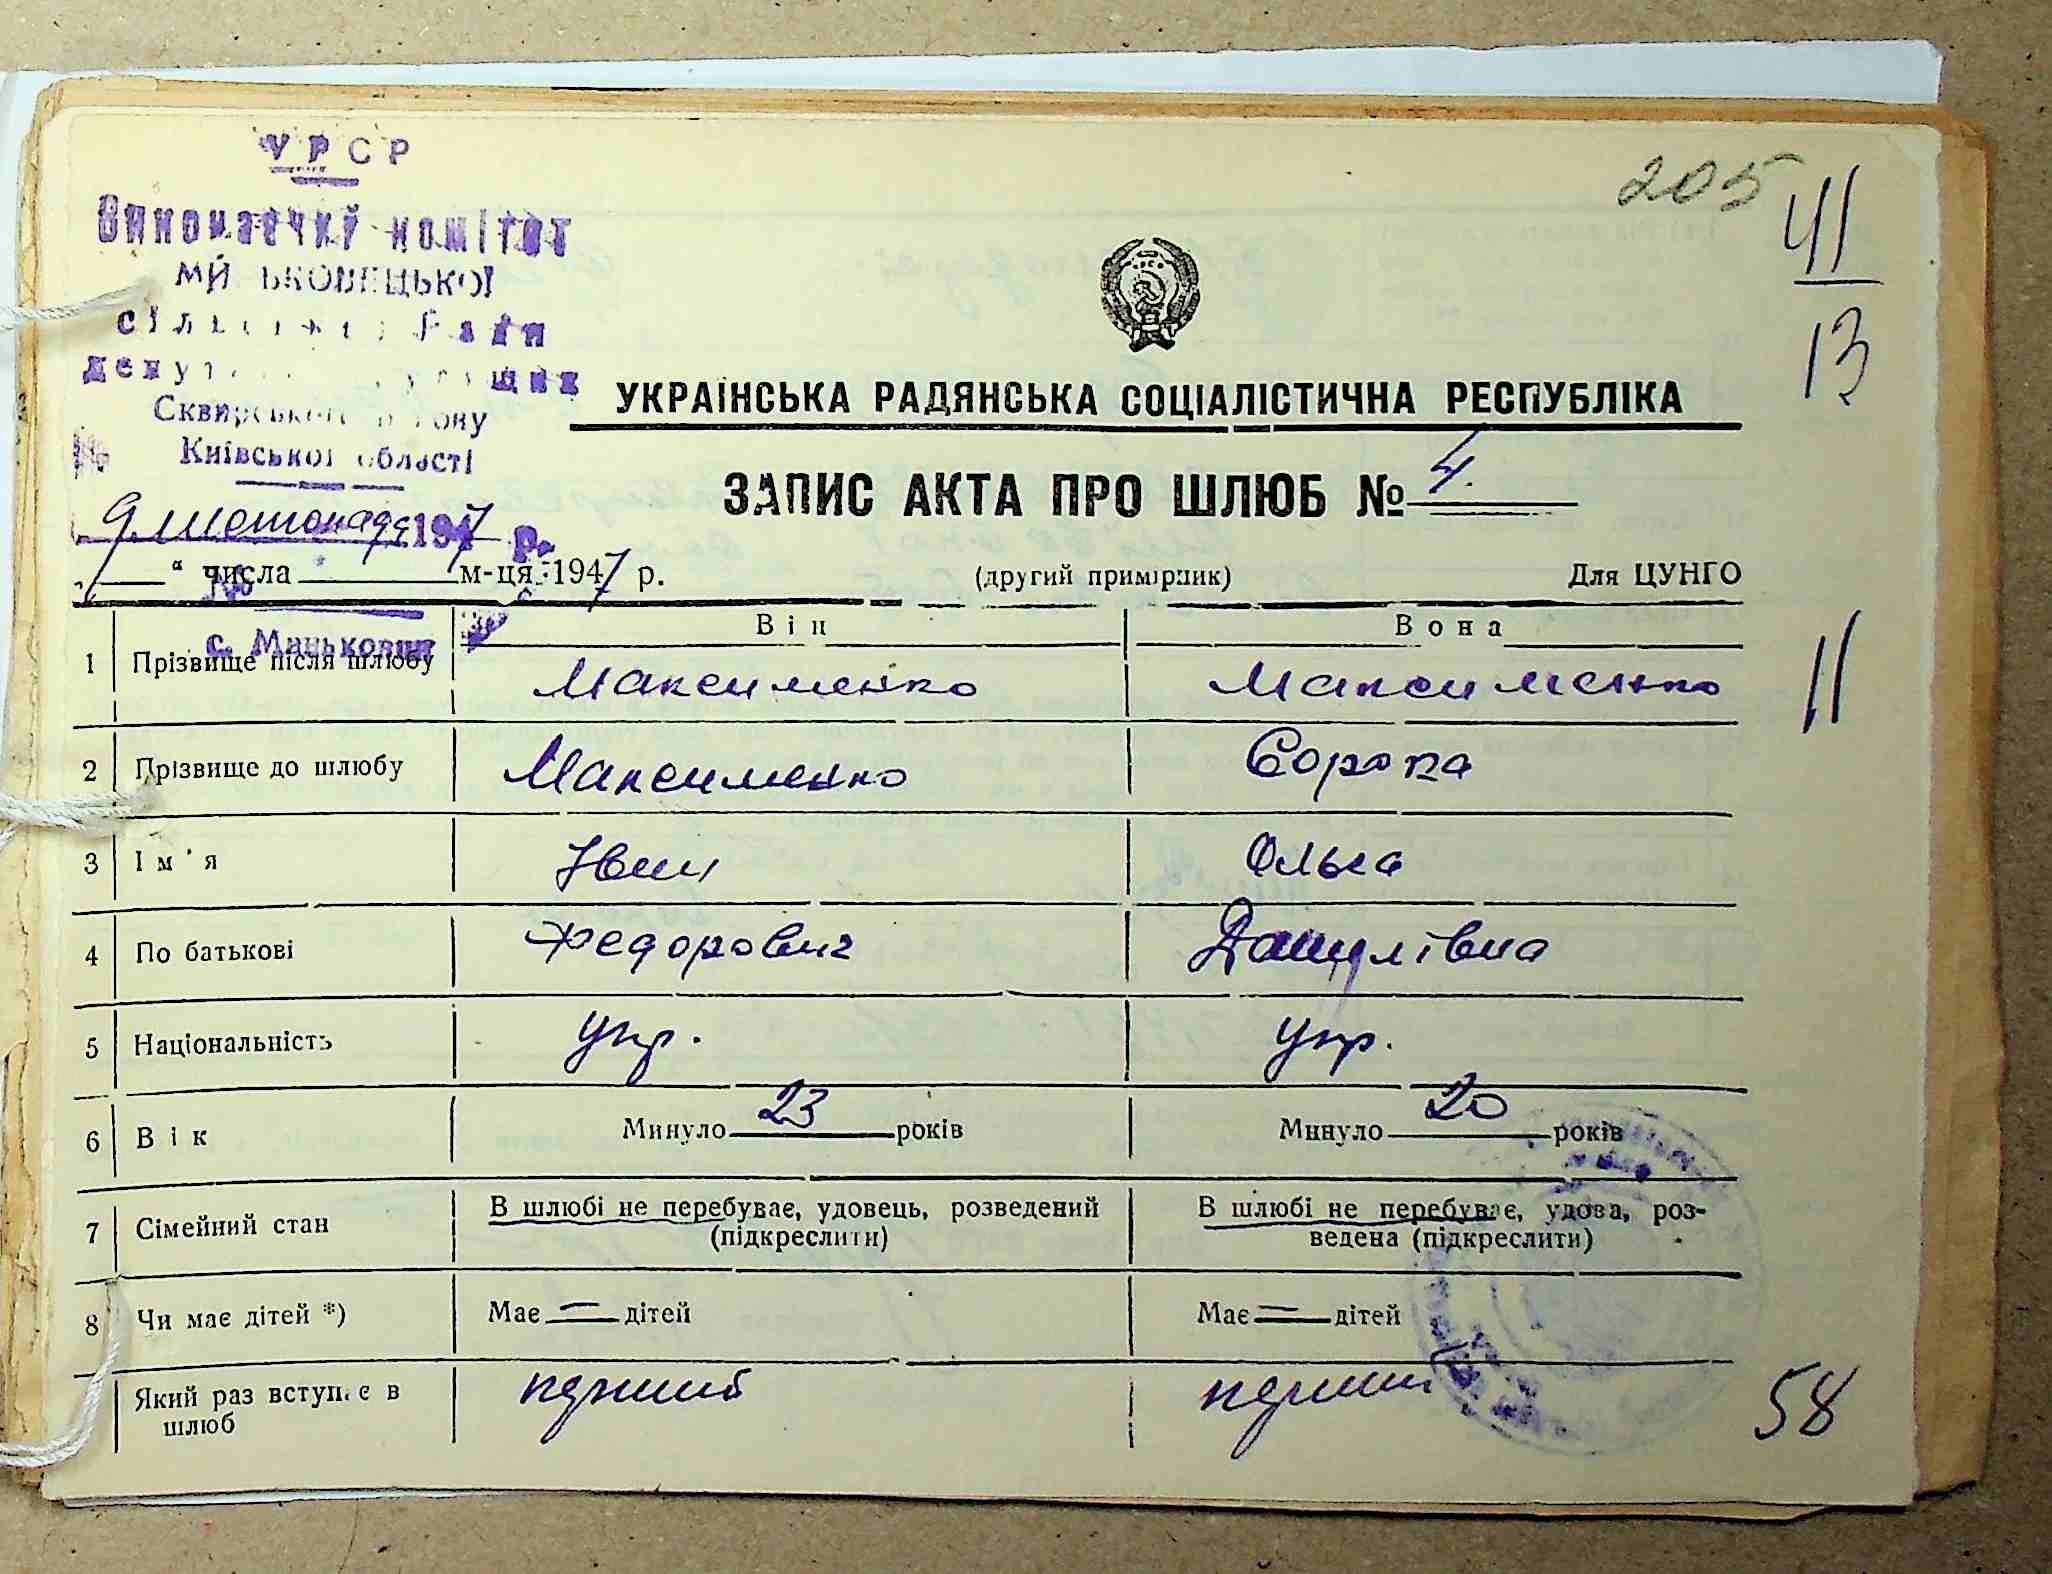 УРСР
Виконавчий комітет
Миньковецької
сільської Ради
депутатів трудящих
Сквирського району
Київської області
9 листопада 1947 р.
№
с. Миньковці
205
41
13
УКРАЇНСЬКА РАДЯНСЬКА СОЦІАЛІСТИЧНА РЕСПУБЛІКА
ЗАПИС АКТА ПРО ШЛЮБ № 4.
„ “ числа м-ця 1947 р. (другий примірник) Для ЦУНГО
Він Вона
1 Прізвище після шлюбу Максименко Максименко
11
2 Прізвище до шлюбу Максименко Сорока
3 Ім'я Іван Ольга
4 По батькові Федорович Данилівна
5 Національність укр. укр.
6 Вік Минуло 23 років Минуло 20 років
7 Сімейний стан В шлюбі не перебуває, удовець, розведений В шлюбі не перебуває, удова, роз-
(підкреслити) ведена (підкреслити)
8 Чи має дітей *) Має — дітей Має — дітей
Який раз вступає в перший перший
шлюб
58